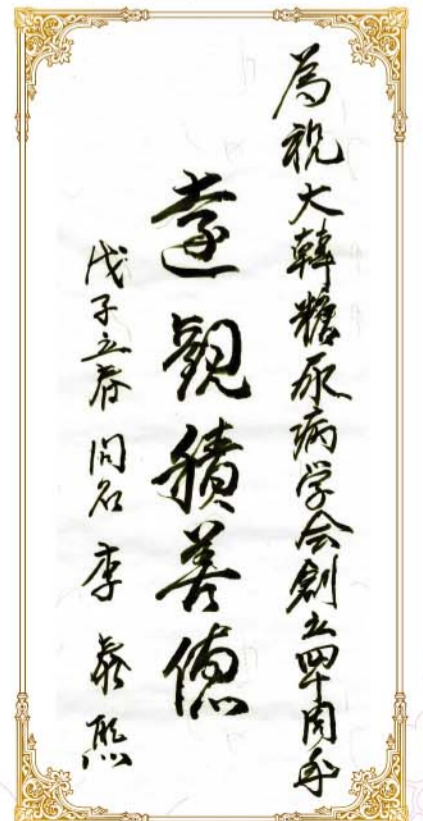 為祝大韓糖尿病学会創立四十周年
遠觀積善德
戊子立春 李泰熙